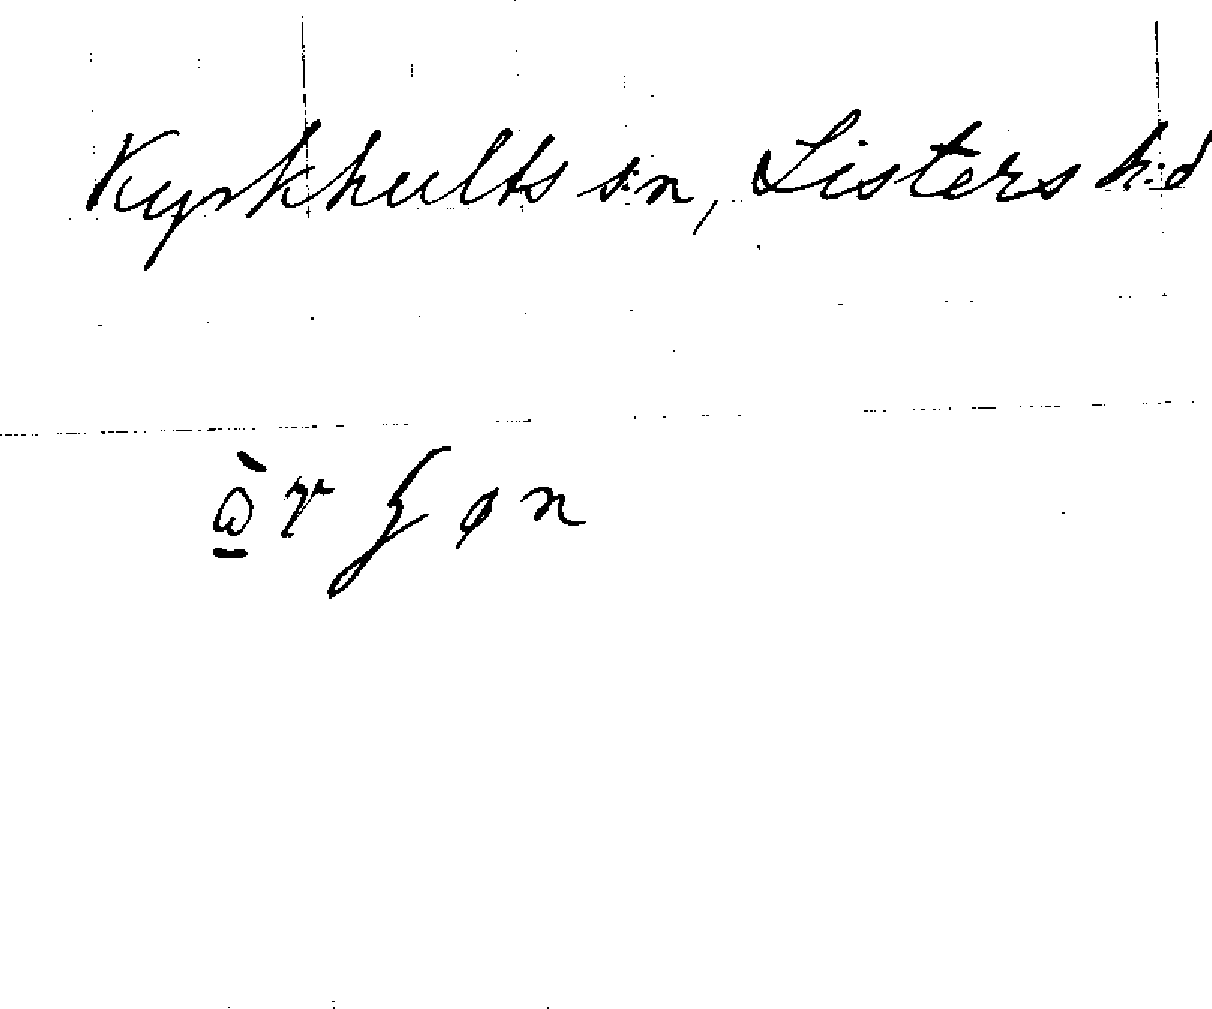 Kyrkhults s:n, Listers h:d